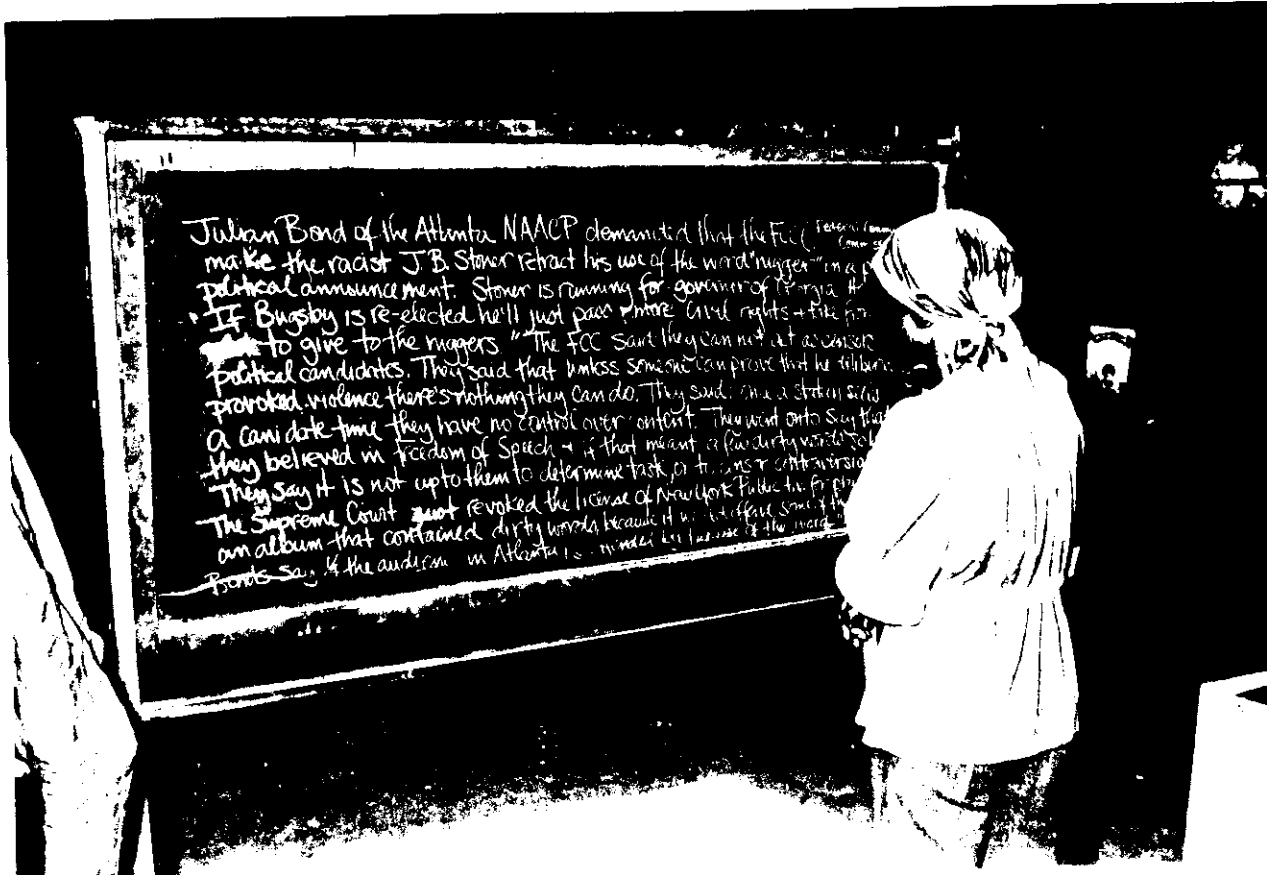 Julian Bond of the Atlanta NAACP demanded that the FCC Federal
make the racist J.B. Stoner retract his use of the word "nigger" in a
political announcement. Stoner is running for governor of Georgia
"If Bugsby is re-elected he'll just pass more civil rights +
to give to the niggers." The FCC said they can not act as censors
political candidates. They said that unless someone can prove that he
provoked violence there's nothing they can do. They said: once a station sells
a canidate time they have no control over content. They went onto say that
they believed in freedom of speech + if that meant a few dirty words
They say it is not up to them to determine task, or to
The Supreme Court just revoked the license of New York Public
an album that contained dirty words, because it
Bonds say the in Atlanta of the word